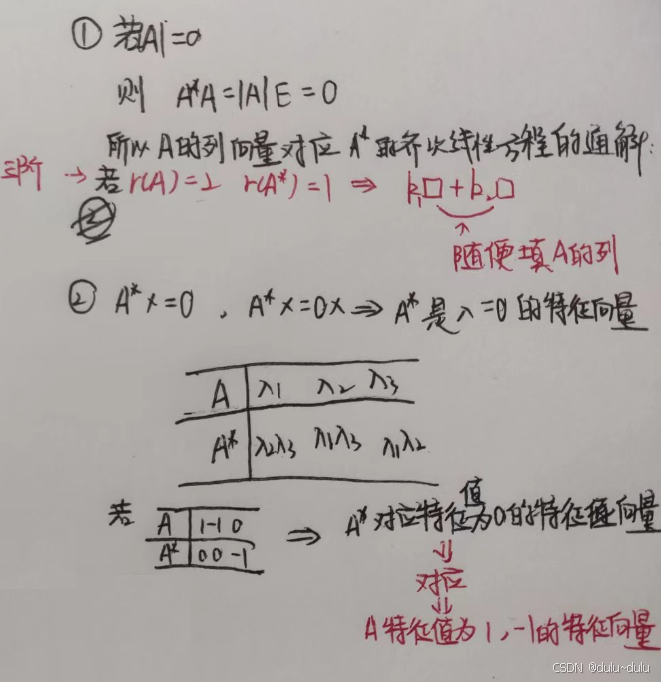 ① 若|A|=0
则 A*A=|A|E=0
所以A的列向量对应A*的齐次线性方程的通解:
三阶 → 若r(A)=2 r(A*)=1 ⇒ k₁□+k₂□
随便填A的列
② A*x=0 , A*x=0x ⇒ A*是λ=0的特征向量
A λ1 λ2 λ3
A* λ2λ3 λ1λ3 λ1λ2
若 A 1 -1 0 ⇒ A*对应特征值为0的特征向量
A* 0 0 -1
对应
A特征值为1,-1的特征向量
CSDN @dulu~dulu